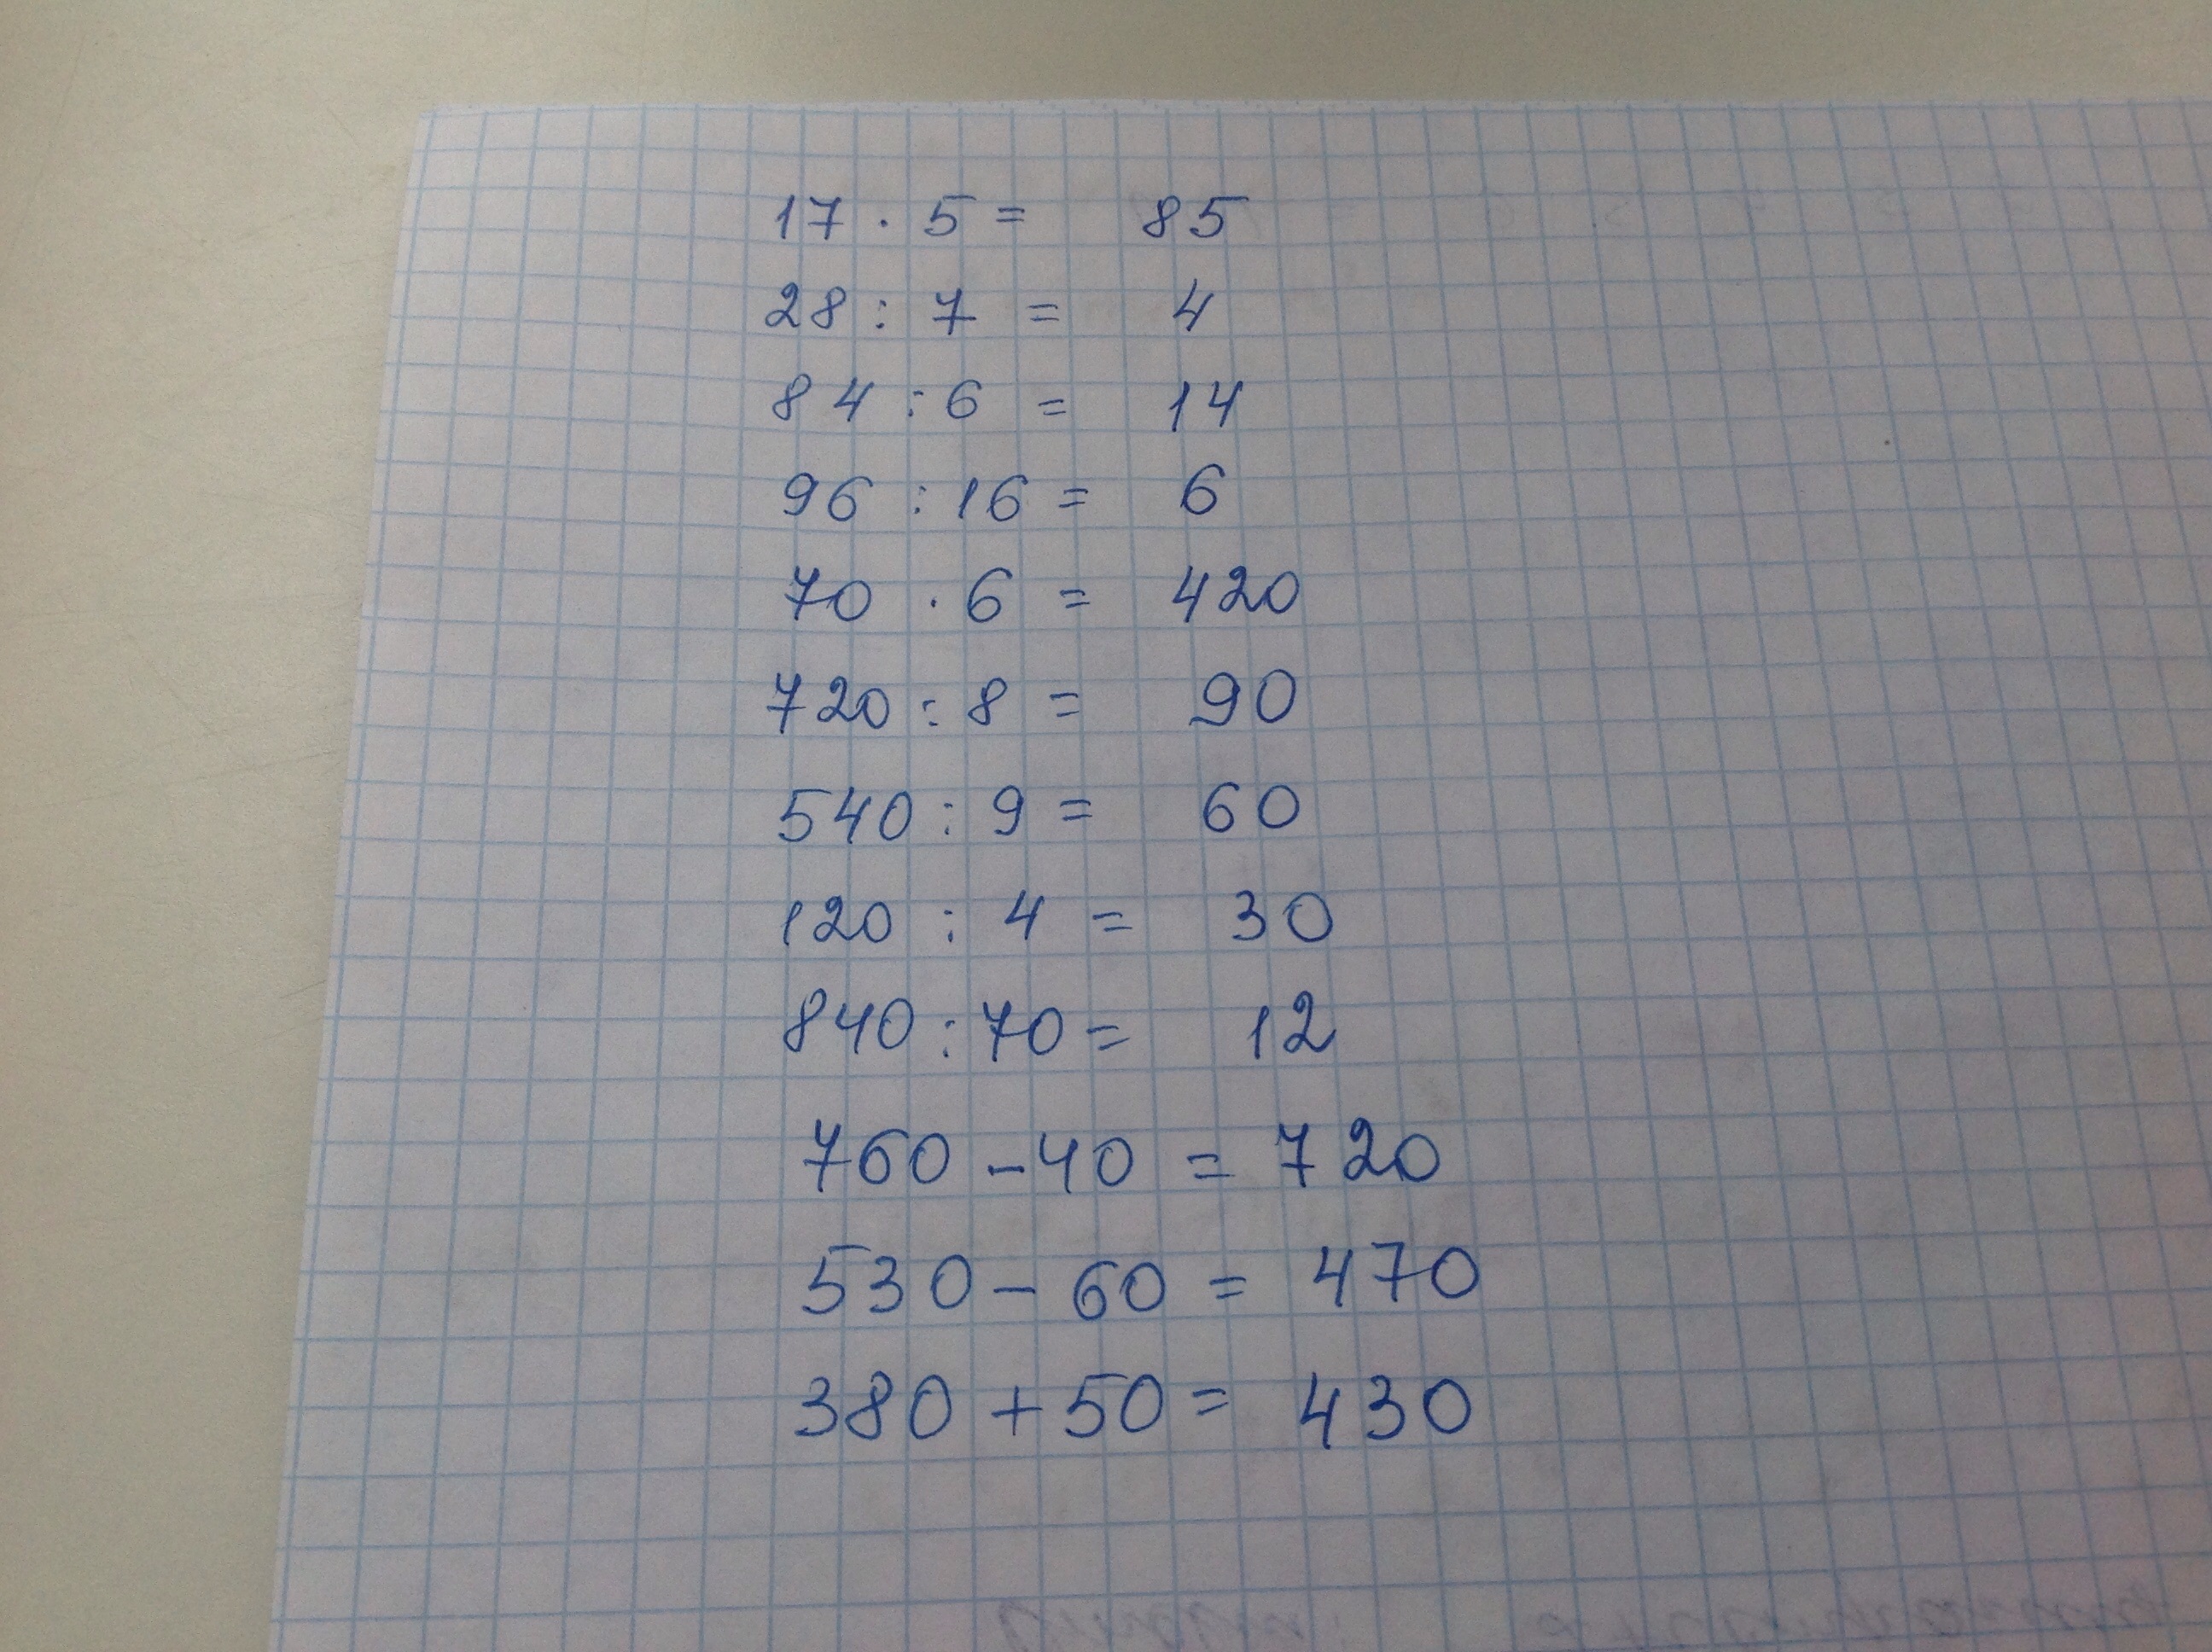 17 · 5 = 85
28 : 7 = 4
84 : 6 = 14
96 : 16 = 6
70 · 6 = 420
720 : 8 = 90
540 : 9 = 60
120 : 4 = 30
840 : 70 = 12
760 - 40 = 720
530 - 60 = 470
380 + 50 = 430